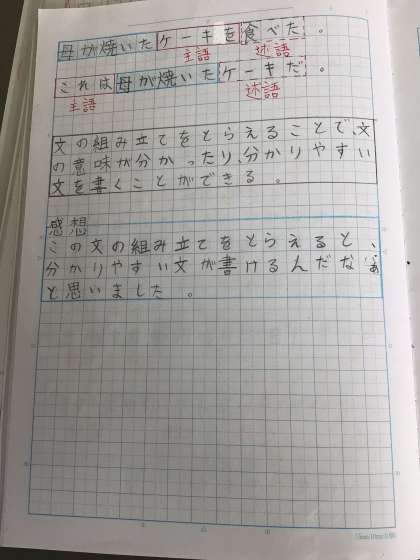 母が焼いたケーキを食べた。
主語 述語
これは母が焼いたケーキだ。
主語 述語
文の組み立てをとらえることで、文
の意味が分かったり、分かりやすい
文を書くことができる。
感想
この文の組み立てをとらえると、
分かりやすい文が書けるんだなぁ
と思いました。